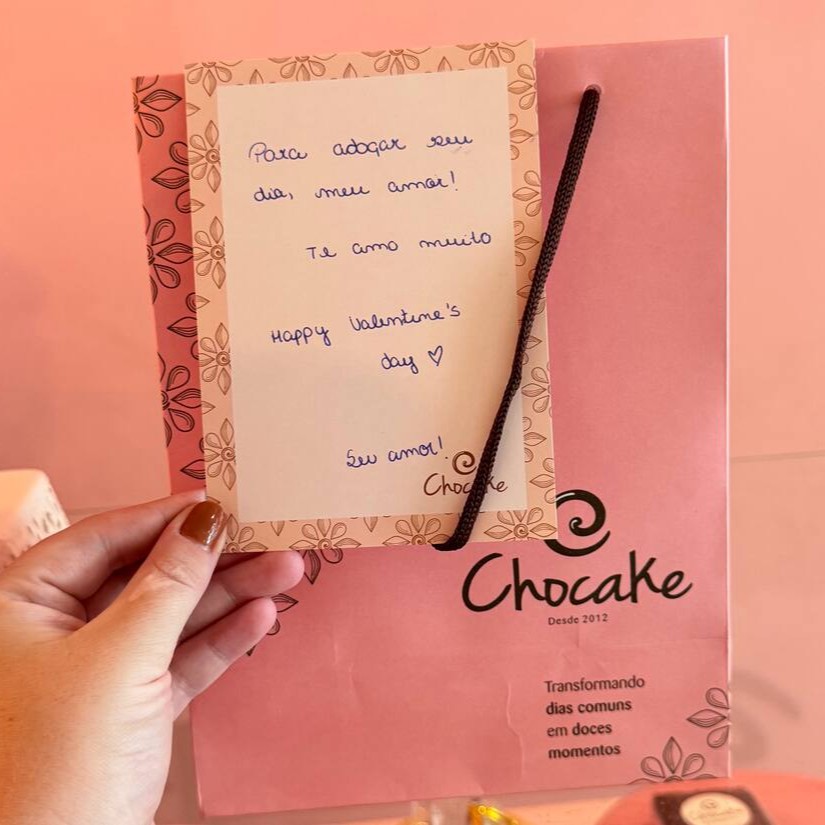 Para adoçar seu
dia, meu amor!
Te amo muito
Happy Valentine's
day ♡
Seu amor!
Chocake
Chocake
Desde 2012
Transformando
dias comuns
em doces
momentos